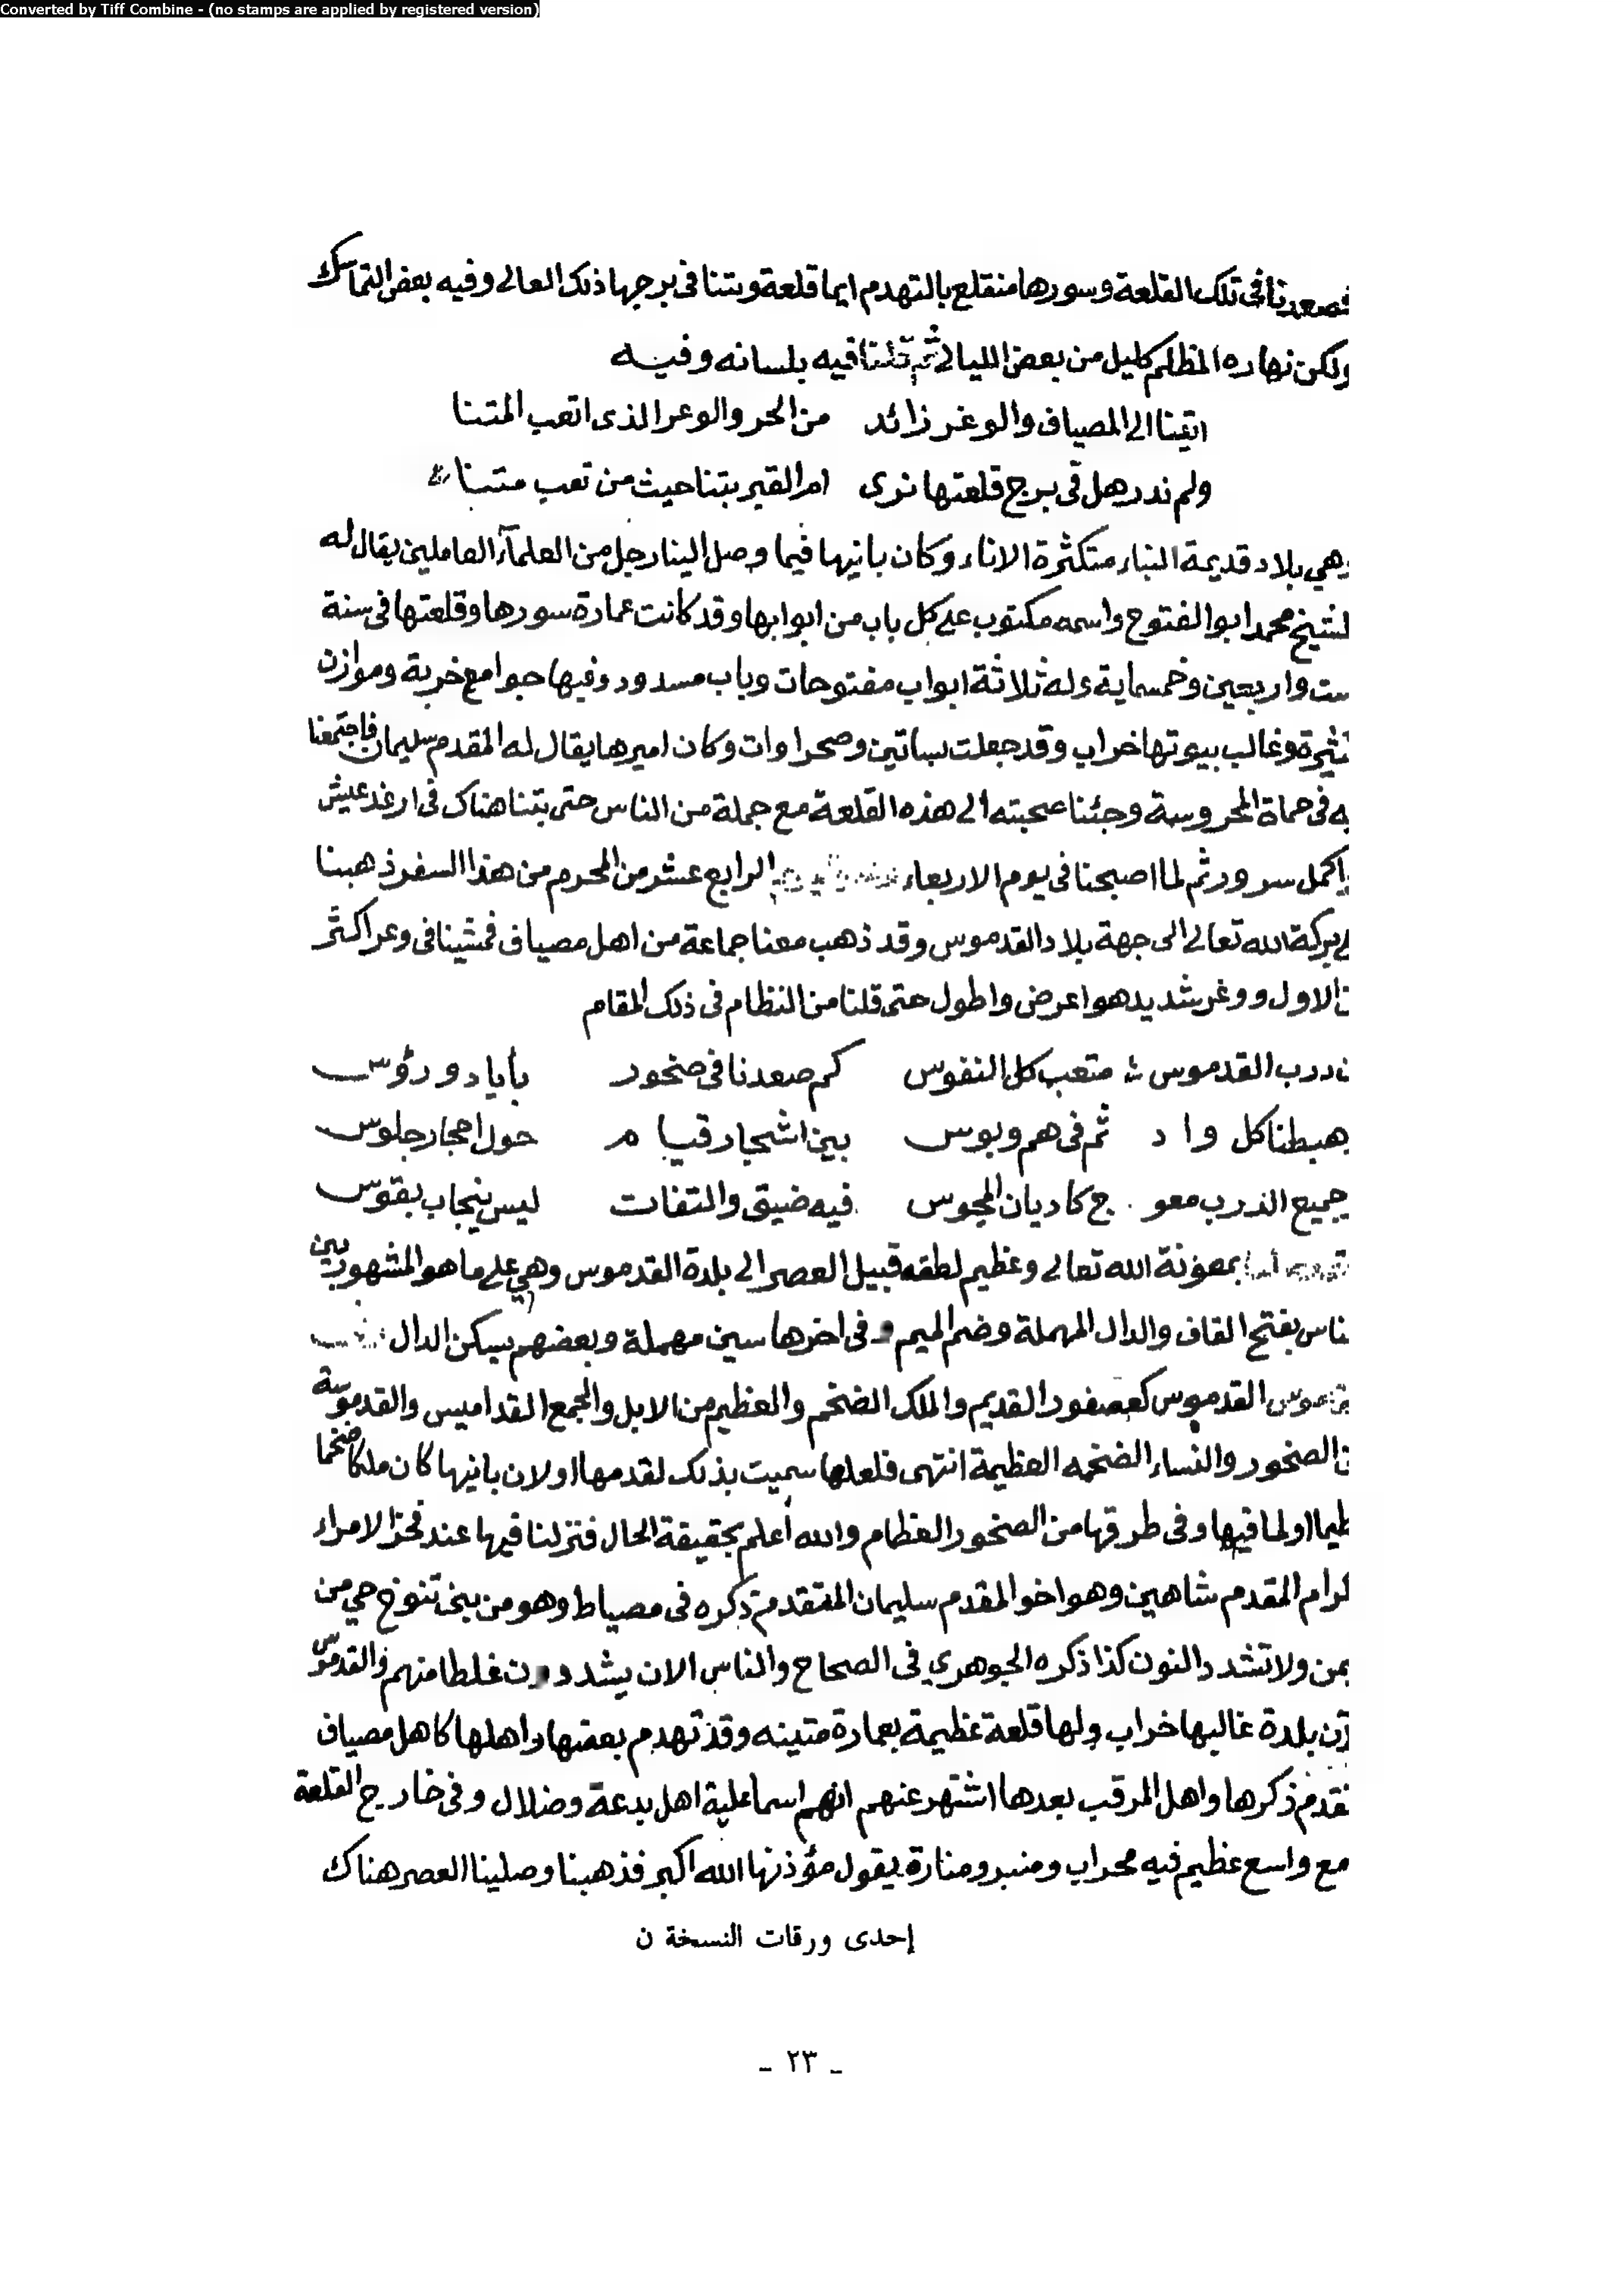 Converted by Tiff Combine - (no stamps are applied by registered version)
فصعدنا فى تلك القلعة وسورها منقلع بالتهدم ايما قلعة وبتنا فى برجها ذلك العالى وفيه بعض التماسك
ولكن نهاره المظلم كليل من بعض الليالى ثم قلنا فيه بلسانه وفيه
اتينا الى المصياف والوغر زائد من الحر والوعر الذى اتعب المتنا
ولم ندر هل فى برج قلعتها نرى ام القير بتنا حيث من تعب متنا
وهي بلاد قديمة البناء متكثرة الاناء وكان بانيها فيما وصل الينا رجل من العلمآء العاملين يقال له
لشيخ محمد ابو الفتوح واسمه مكتوب على كل باب من ابوابها وقد كانت عمارة سورها وقلعتها فى سنة
ست واربعين وخمسماية وله ثلاثة ابواب مفتوحات وباب مسدود وفيها جوامع خربة وموازن
كثيرة وغالب بيوتها خراب وقد جعلت بساتين وصحراوات وكان اميرها يقال له المقدم سليمان فاجتمعنا
به فى حماة المحروسة وجئنا صحبته الى هذه القلعة مع جملة من الناس حتى بتنا هناك فى ارغد عيش
واكمل سرور ثم لما اصبحنا فى يوم الاربعاء الرابع عشر من المحرم من هذا السفر ذهبنا
على بركة الله تعالى الى جهة بلاد القدموس وقد ذهب معنا جماعة من اهل مصياف فمشينا فى وعر اكثر
من الاول ووغر شديد هو اعرض واطول حتى قلنا من النظام فى ذلك المقام
ن درب القدموس متعب كل النفوس كم صعدنا فى صخور بأياد ورؤس
هبطنا كل واد ثم فى هم وبوس بين اشجار قيام حول احجار جلوس
جميع الدرب معو ج كاديان المجوس فيه ضيق والتفات ليس ينجاب بقوس
بمعونة الله تعالى وعظيم لطفه قبيل العصر الى بلدة القدموس وهي على ما هو المشهور بين
لناس بفتح القاف والدال المهملة وضم الميم وفى اخرها سين مهملة وبعضهم يسكن الدال
القدموس كعصفور القديم والملك الضخم والعظيم من الابل والجمع القداميس والقدموسة
من الصخور والنساء الضخمه العظيمة انتهى فلعلها سميت بذلك لقدمها او لان بانيها كان ملكا ضخما
ظيما او لما فيها وفى طرقها من الصخور العظام والله أعلم بحقيقة الحال فنزلنا فيها عند فخر الامراء
لكرام المقدم شاهين وهو اخو المقدم سليمان المتقدم ذكره فى مصياط وهو من بنى تنوخ حي من
يمن ولا تشدد النون كذا ذكره الجوهري فى الصحاح والناس الان يشددون غلطا منهم والقدموس
لان بلدة غالبها خراب ولها قلعة عظيمة بعمارة متينه وقد تهدم بعضها واهلها كاهل مصياف
تقدم ذكرها واهل المرقب بعدها اشتهر عنهم انهم اسماعلية اهل بدعة وضلال وفى خارج القلعة
مع واسع عظيم فيه محراب ومنبر ومنارة يقول مؤذنها الله اكبر فذهبنا وصلينا العصر هناك
إحدى ورقات النسخة ن
- ٢٣ -